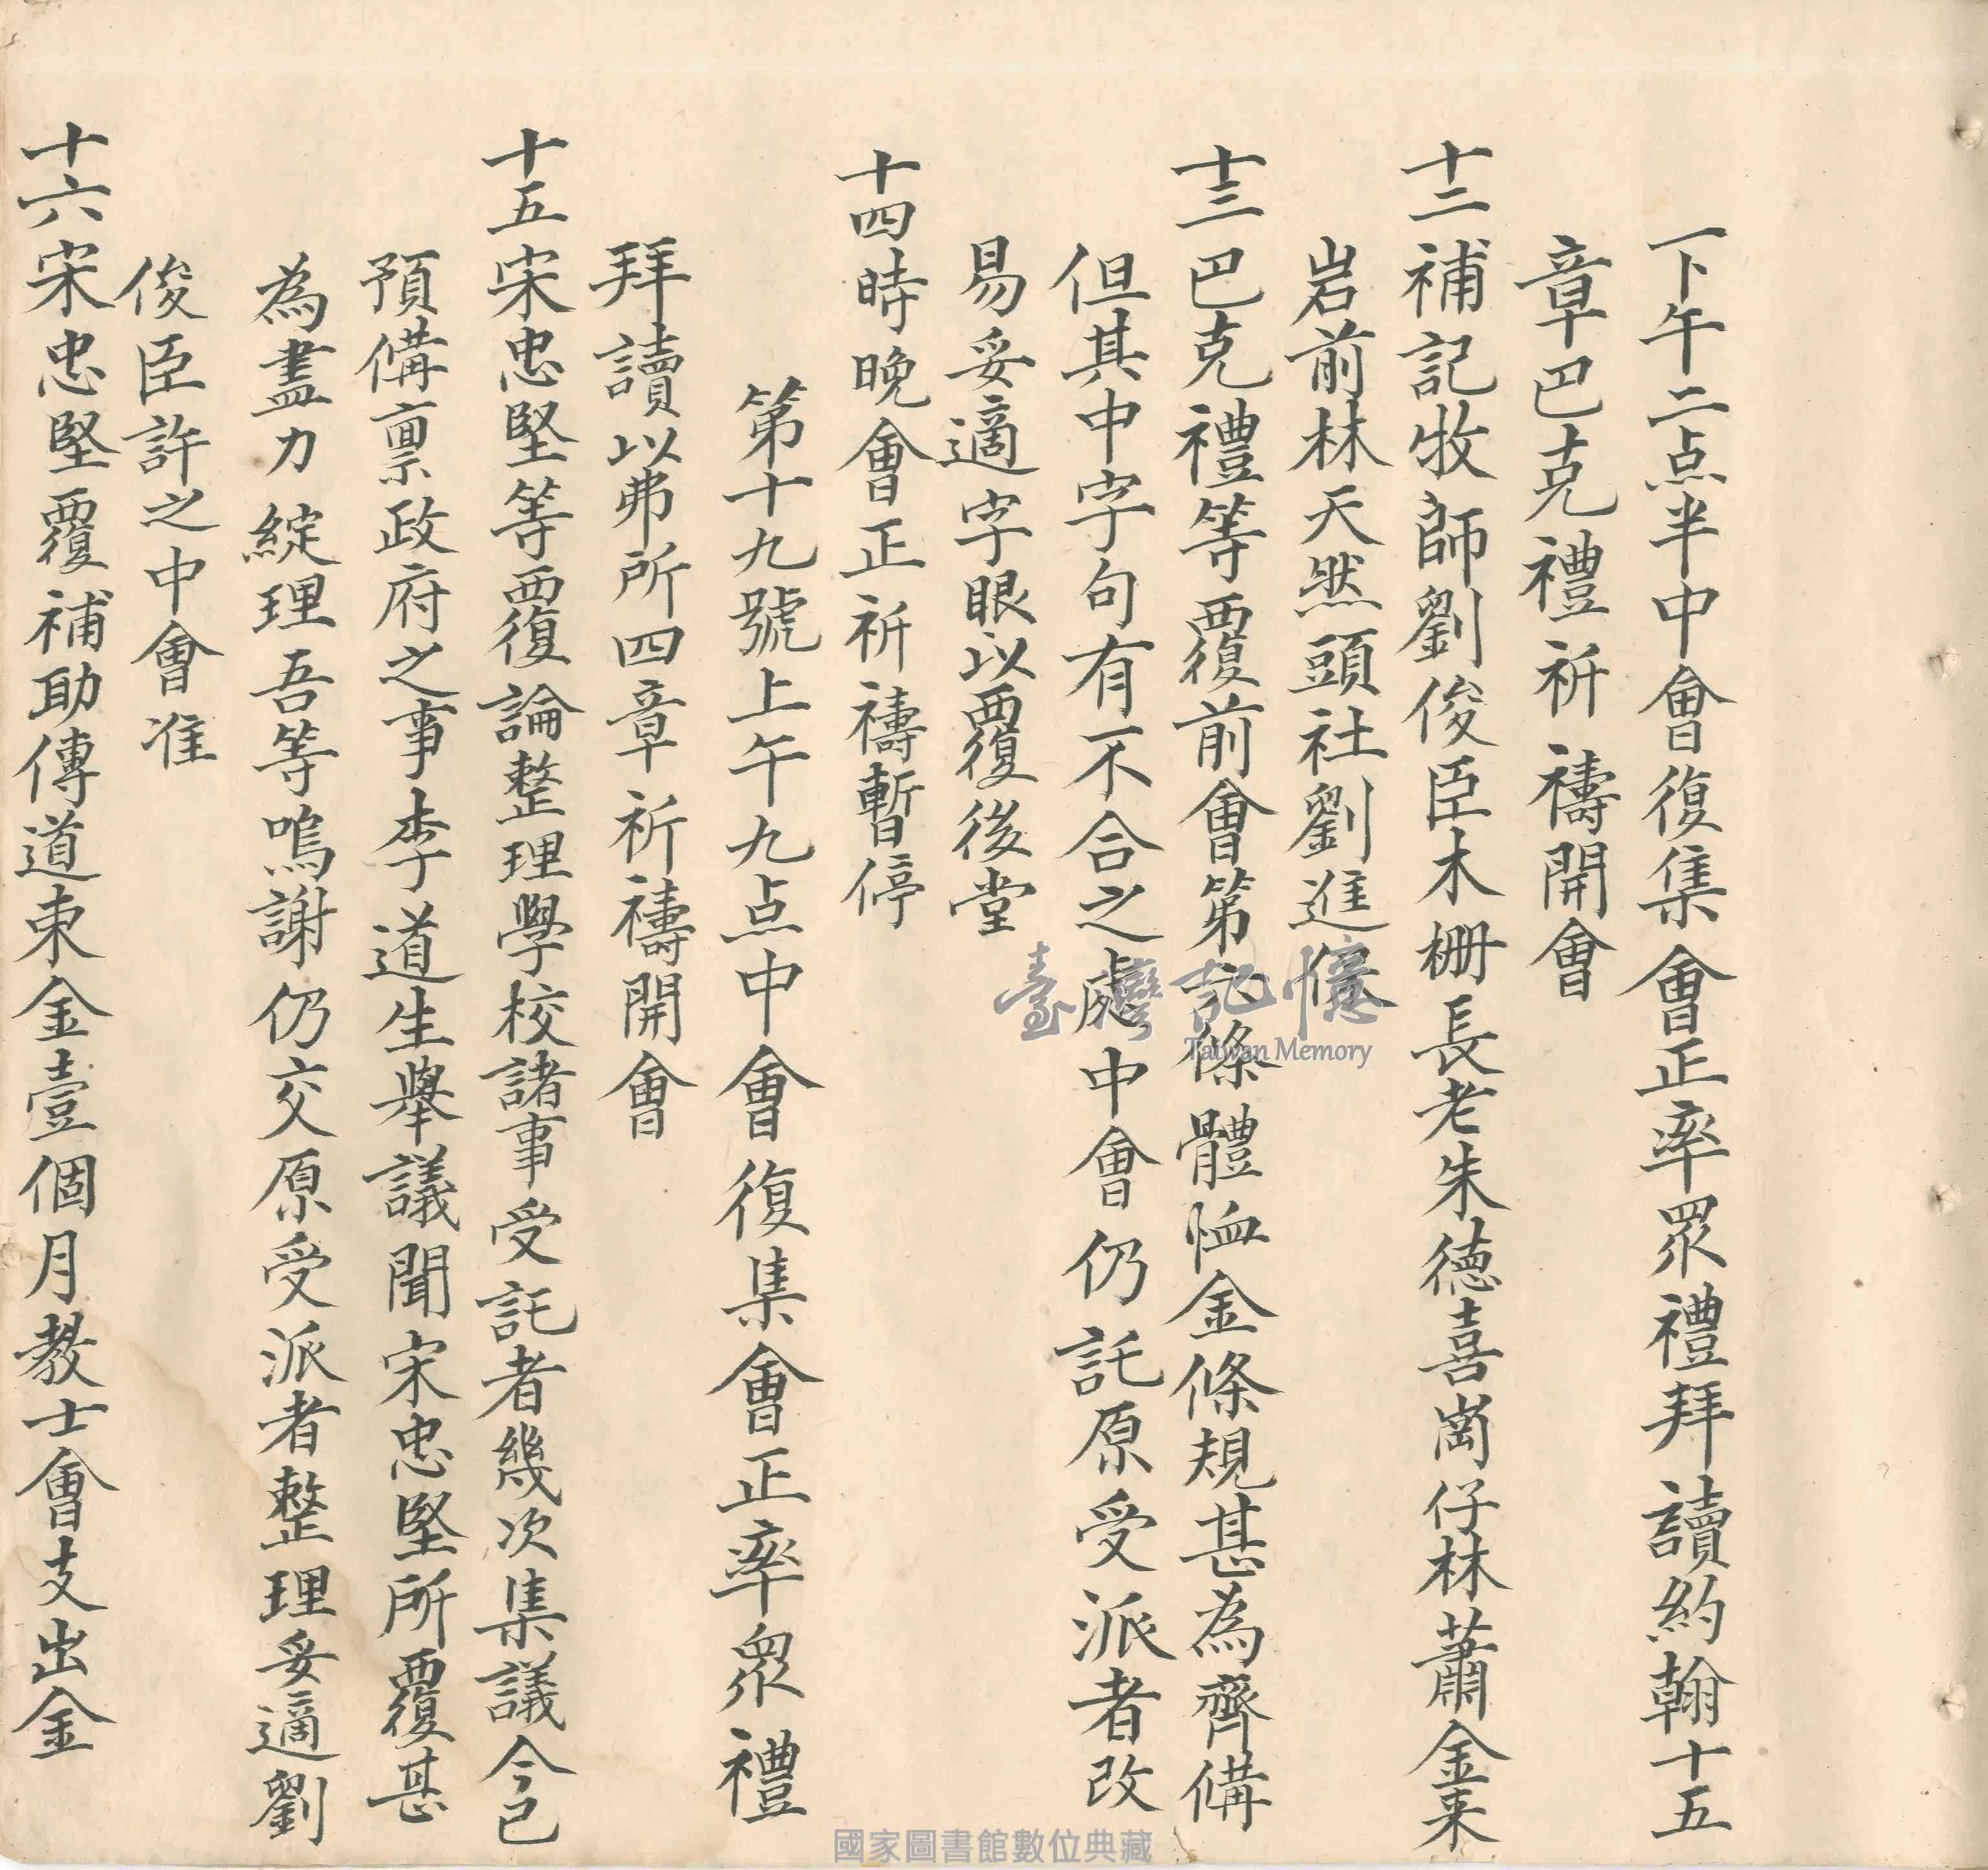 下午二点半中會復集會正率眾禮拜讀約翰十五
章巴克禮祈禱開會
十二補記牧師劉俊臣木柵長老朱德喜崗仔林蕭金来
岩前林天然頭社劉進
十三巴克禮等覆前會第 條體恤金條規甚為齊備
但其中字句有不合之處中會仍託原受派者改
易妥適字眼以覆後堂
十四時晚會正祈禱暫停
第十九號上午九点中會復集會正率眾禮
拜讀以弗所四章祈禱開會
十五宋忠堅等覆論整理學校諸事受託者幾次集議今已
預備禀政府之事李道生舉議聞宋忠堅所覆甚
為盡力綻理吾等鳴謝仍交原受派者整理妥適劉
俊臣許之中會准
十六宋忠堅覆補助傳道束金壹個月教士會支出金
臺灣記憶
Taiwan Memory
國家圖書館數位典藏